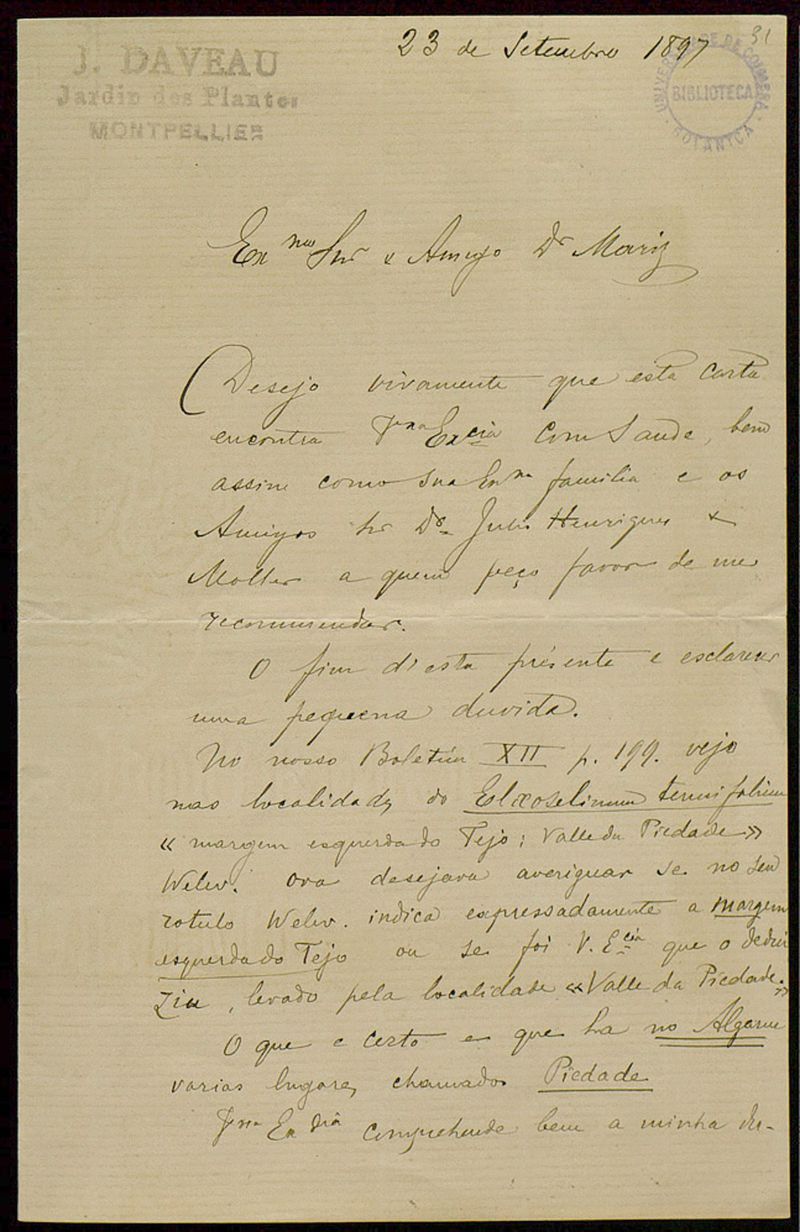 31
23 de Setembro 1897
J. DAVEAU
Jardin des Plantes
MONTPELLIER
UNIVERSIDADE DE COIMBRA
BIBLIOTECA
BOTANICA
Ex.mo Snr e Amigo Dr Mariz
Desejo vivamente que esta carta
encontra Vra Excia com Saude, bem
assim como sua Exma familia e os
Amigos Sr Dr. Julio Henriques e
Moller a quem peço favor de me
recommendar.
O fim d'esta présente e esclarecer
uma pequena duvida.
No nosso Boletim XII p. 199. vejo
nas localidades do Elæoselinum tenuifolium
« margem esquerda do Tejo; Valle da Piedade »
Welw. ora desejava averiguar se no seu
rotulo Welw. indica expressadamente a margem
esquerda do Tejo ou se foi V. Ecia que o dedu
ziu, levado pela localidade « Valle da Piedade. »
O que e certo e que ha no Algarve
varias lugares chamados Piedade
Vra Excia comprehende bem a minha du-